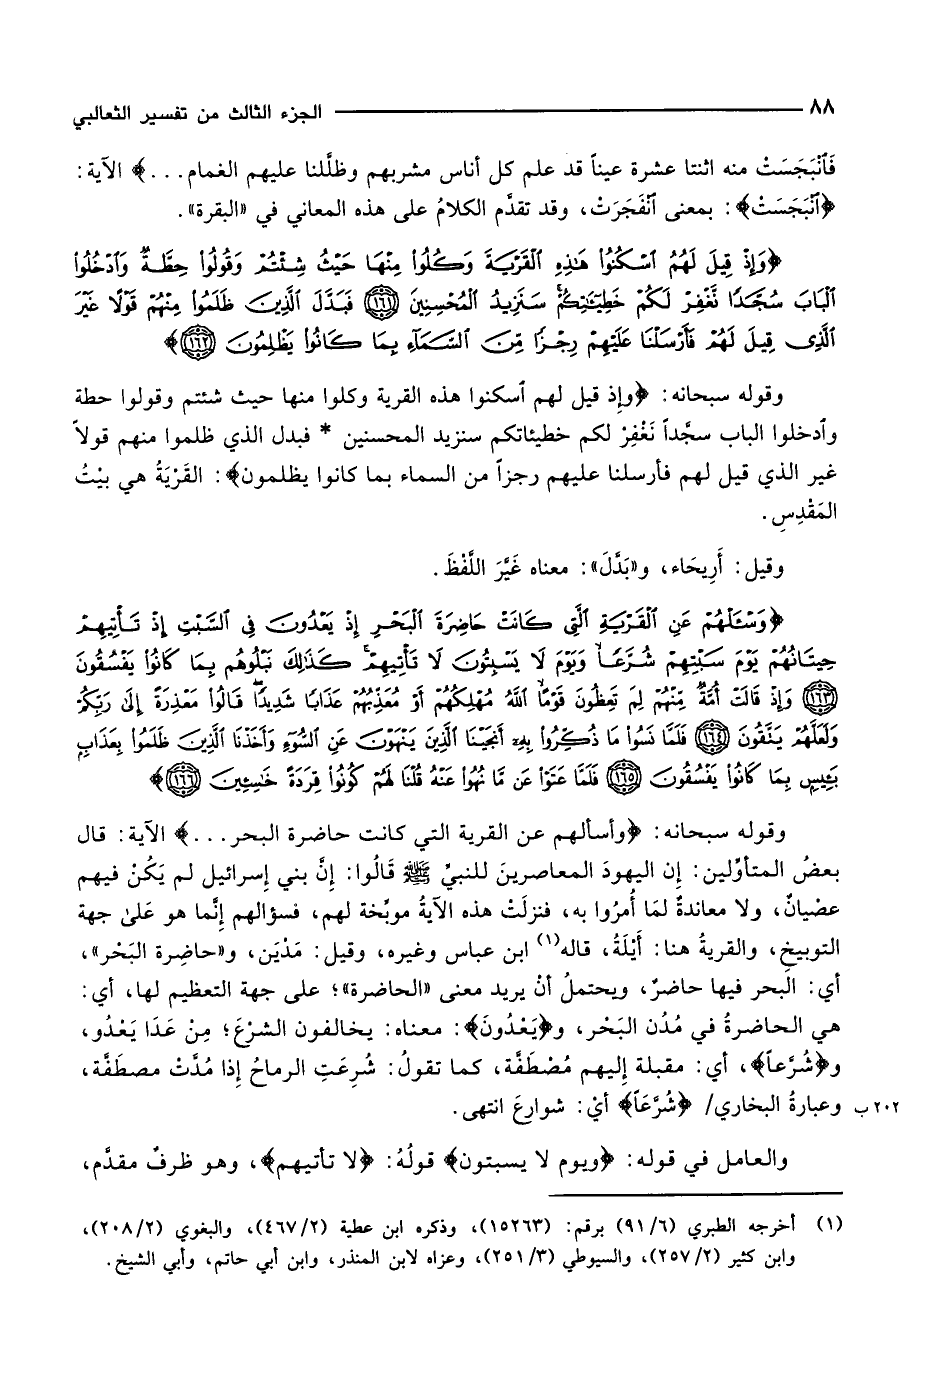 ٨٨ الجزء الثالث من تفسير الثعالبي
فَٱنْبَجَسَتْ منه اثنتا عشرة عيناً قد علم كل أناس مشربهم وظلَّلنا عليهم الغمام...﴾ الآية:
﴿ٱنْبَجَسَتْ﴾: بمعنى ٱنْفَجَرَتْ، وقد تقدَّم الكلامُ على هذه المعاني في «البقرة».
﴿وَإِذْ قِيلَ لَهُمُ ٱسْكُنُوا۟ هَٰذِهِ ٱلْقَرْيَةَ وَكُلُوا۟ مِنْهَا حَيْثُ شِئْتُمْ وَقُولُوا۟ حِطَّةٌ وَٱدْخُلُوا۟
ٱلْبَابَ سُجَّدًا نَّغْفِرْ لَكُمْ خَطِيٓـَٰٔتِكُمْ سَنَزِيدُ ٱلْمُحْسِنِينَ ١٦١ فَبَدَّلَ ٱلَّذِينَ ظَلَمُوا۟ مِنْهُمْ قَوْلًا غَيْرَ
ٱلَّذِى قِيلَ لَهُمْ فَأَرْسَلْنَا عَلَيْهِمْ رِجْزًا مِّنَ ٱلسَّمَآءِ بِمَا كَانُوا۟ يَظْلِمُونَ ١٦٢﴾
وقوله سبحانه: ﴿وإذ قيل لهم ٱسكنوا هذه القرية وكلوا منها حيث شئتم وقولوا حطة
وٱدخلوا الباب سجَّداً نَغْفِرْ لكم خطيئاتكم سنزيد المحسنين * فبدل الذي ظلموا منهم قولاً
غير الذي قيل لهم فأرسلنا عليهم رجزاً من السماء بما كانوا يظلمون﴾: القَرْيَةُ هي بيْتُ
المَقْدِسِ.
وقيل: أَرِيحَاء، و«بَدَّلَ»: معناه غَيَّرَ اللَّفْظَ.
﴿وَسْـَٔلْهُمْ عَنِ ٱلْقَرْيَةِ ٱلَّتِى كَانَتْ حَاضِرَةَ ٱلْبَحْرِ إِذْ يَعْدُونَ فِى ٱلسَّبْتِ إِذْ تَأْتِيهِمْ
حِيتَانُهُمْ يَوْمَ سَبْتِهِمْ شُرَّعًا وَيَوْمَ لَا يَسْبِتُونَ لَا تَأْتِيهِمْ كَذَٰلِكَ نَبْلُوهُم بِمَا كَانُوا۟ يَفْسُقُونَ
١٦٣ وَإِذْ قَالَتْ أُمَّةٌ مِّنْهُمْ لِمَ تَعِظُونَ قَوْمًا ٱللَّهُ مُهْلِكُهُمْ أَوْ مُعَذِّبُهُمْ عَذَابًا شَدِيدًا قَالُوا۟ مَعْذِرَةً إِلَىٰ رَبِّكُمْ
وَلَعَلَّهُمْ يَتَّقُونَ ١٦٤ فَلَمَّا نَسُوا۟ مَا ذُكِّرُوا۟ بِهِۦٓ أَنجَيْنَا ٱلَّذِينَ يَنْهَوْنَ عَنِ ٱلسُّوٓءِ وَأَخَذْنَا ٱلَّذِينَ ظَلَمُوا۟ بِعَذَابٍ
بَـِٔيسٍ بِمَا كَانُوا۟ يَفْسُقُونَ ١٦٥ فَلَمَّا عَتَوْا۟ عَن مَّا نُهُوا۟ عَنْهُ قُلْنَا لَهُمْ كُونُوا۟ قِرَدَةً خَٰسِـِٔينَ ١٦٦﴾
وقوله سبحانه: ﴿وٱسألهم عن القرية التي كانت حاضرة البحر...﴾ الآية: قال
بعضُ المتأوِّلين: إن اليهودَ المعاصرينَ للنبيِّ ﷺ قَالُوا: إنَّ بني إسرائيل لم يَكُنْ فيهم
عصْيانٌ، ولا معاندةٌ لمَا أُمرُوا به، فنزلَتْ هذه الآيةُ موبِّخة لهم، فسؤالهم إنَّما هو عَلَىٰ جهة
التوبيخِ، والقريةُ هنا: أَيْلَةُ، قاله(١) ابن عباس وغيره، وقيل: مَدْيَن، و«حاضِرة البَحْر»،
أي: البحر فيها حاضرٌ، ويحتملُ أنْ يريد معنى «الحاضرة»؛ على جهة التعظيم لها، أي:
هي الحاضرةُ في مُدُن البَحْر، و﴿يَعْدُونَ﴾: معناه: يخالفون الشرْعَ؛ مِنْ عَدَا يَعْدُو،
و﴿شُرَّعاً﴾، أي: مقبلة إليهم مُصْطَفَّة، كما تقولُ: شُرِعَتِ الرماحُ إذا مُدَّتْ مصطَفَّة،
وعبارةُ البخاري/ ﴿شُرَّعَاً﴾ أيْ: شوارعَ انتهى. ٢٠٢ ب
والعامل في قوله: ﴿ويوم لا يسبتون﴾ قولُهُ: ﴿لا تأتيهم﴾، وهو ظرفٌ مقدَّم،
(١) أخرجه الطبري (٩١/٦) برقم: (١٥٢٦٣)، وذكره ابن عطية (٤٦٧/٢)، والبغوي (٢٠٨/٢)،
وابن كثير (٢٥٧/٢)، والسيوطي (٢٥١/٣)، وعزاه لابن المنذر، وابن أبي حاتم، وأبي الشيخ.